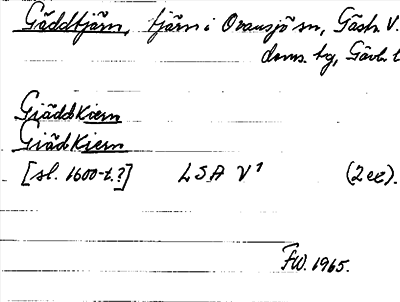 Gäddtjärn, tjärn i Ovansjö sn, Gästr. V.
doms. tg, Gävl. l
Giäddkiern
Giädkiern
[sl. 1600-t.?] LSA V¹ (2 ex).
FW. 1965.